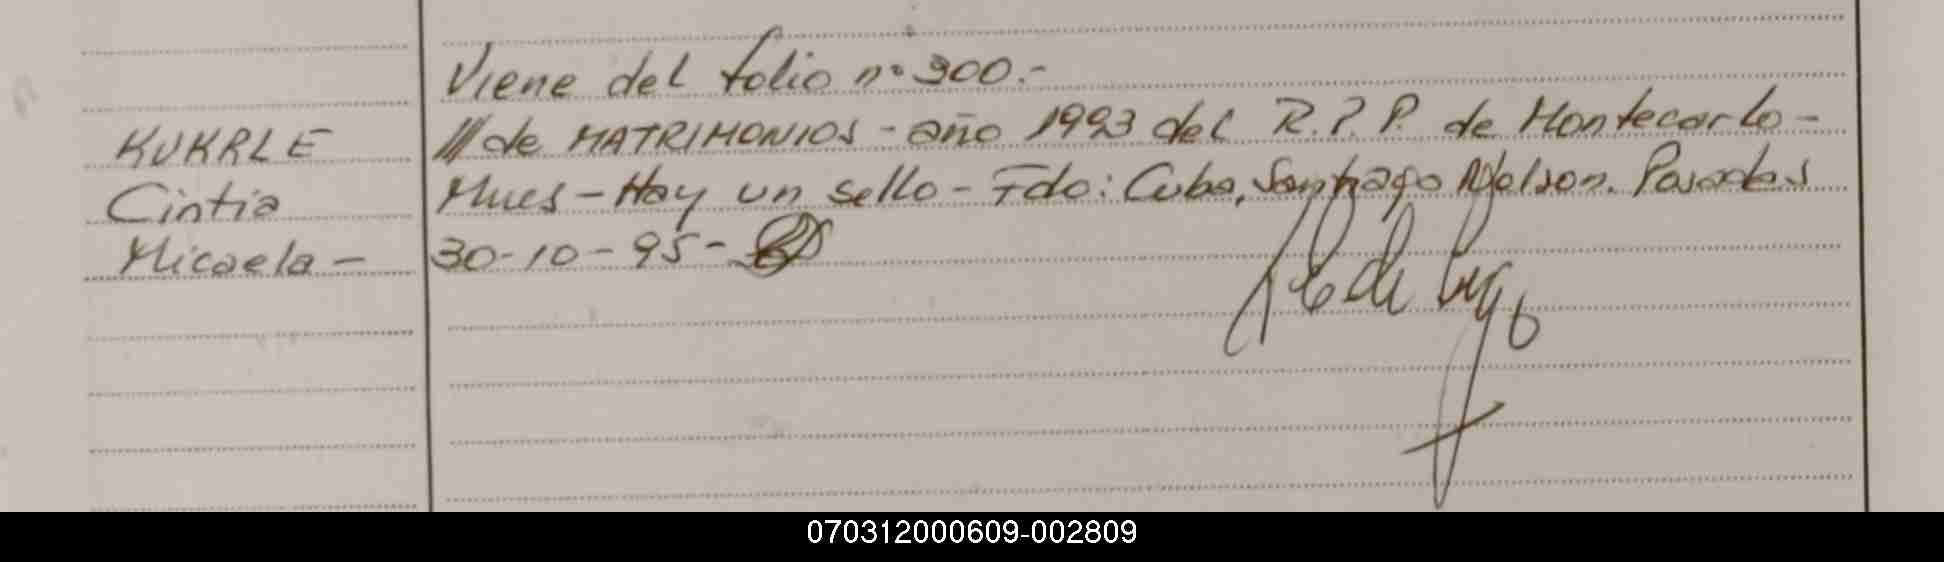 Viene del folio nº 300.-
KUKRLE
Cintia
Micaela -
/// de MATRIMONIOS - año 1993 del R.P.P. de Montecarlo -
Mnes - Hay un sello - Fdo: Cuba, Santiago Nelson. Posadas
30-10-95-
070312000609-002809